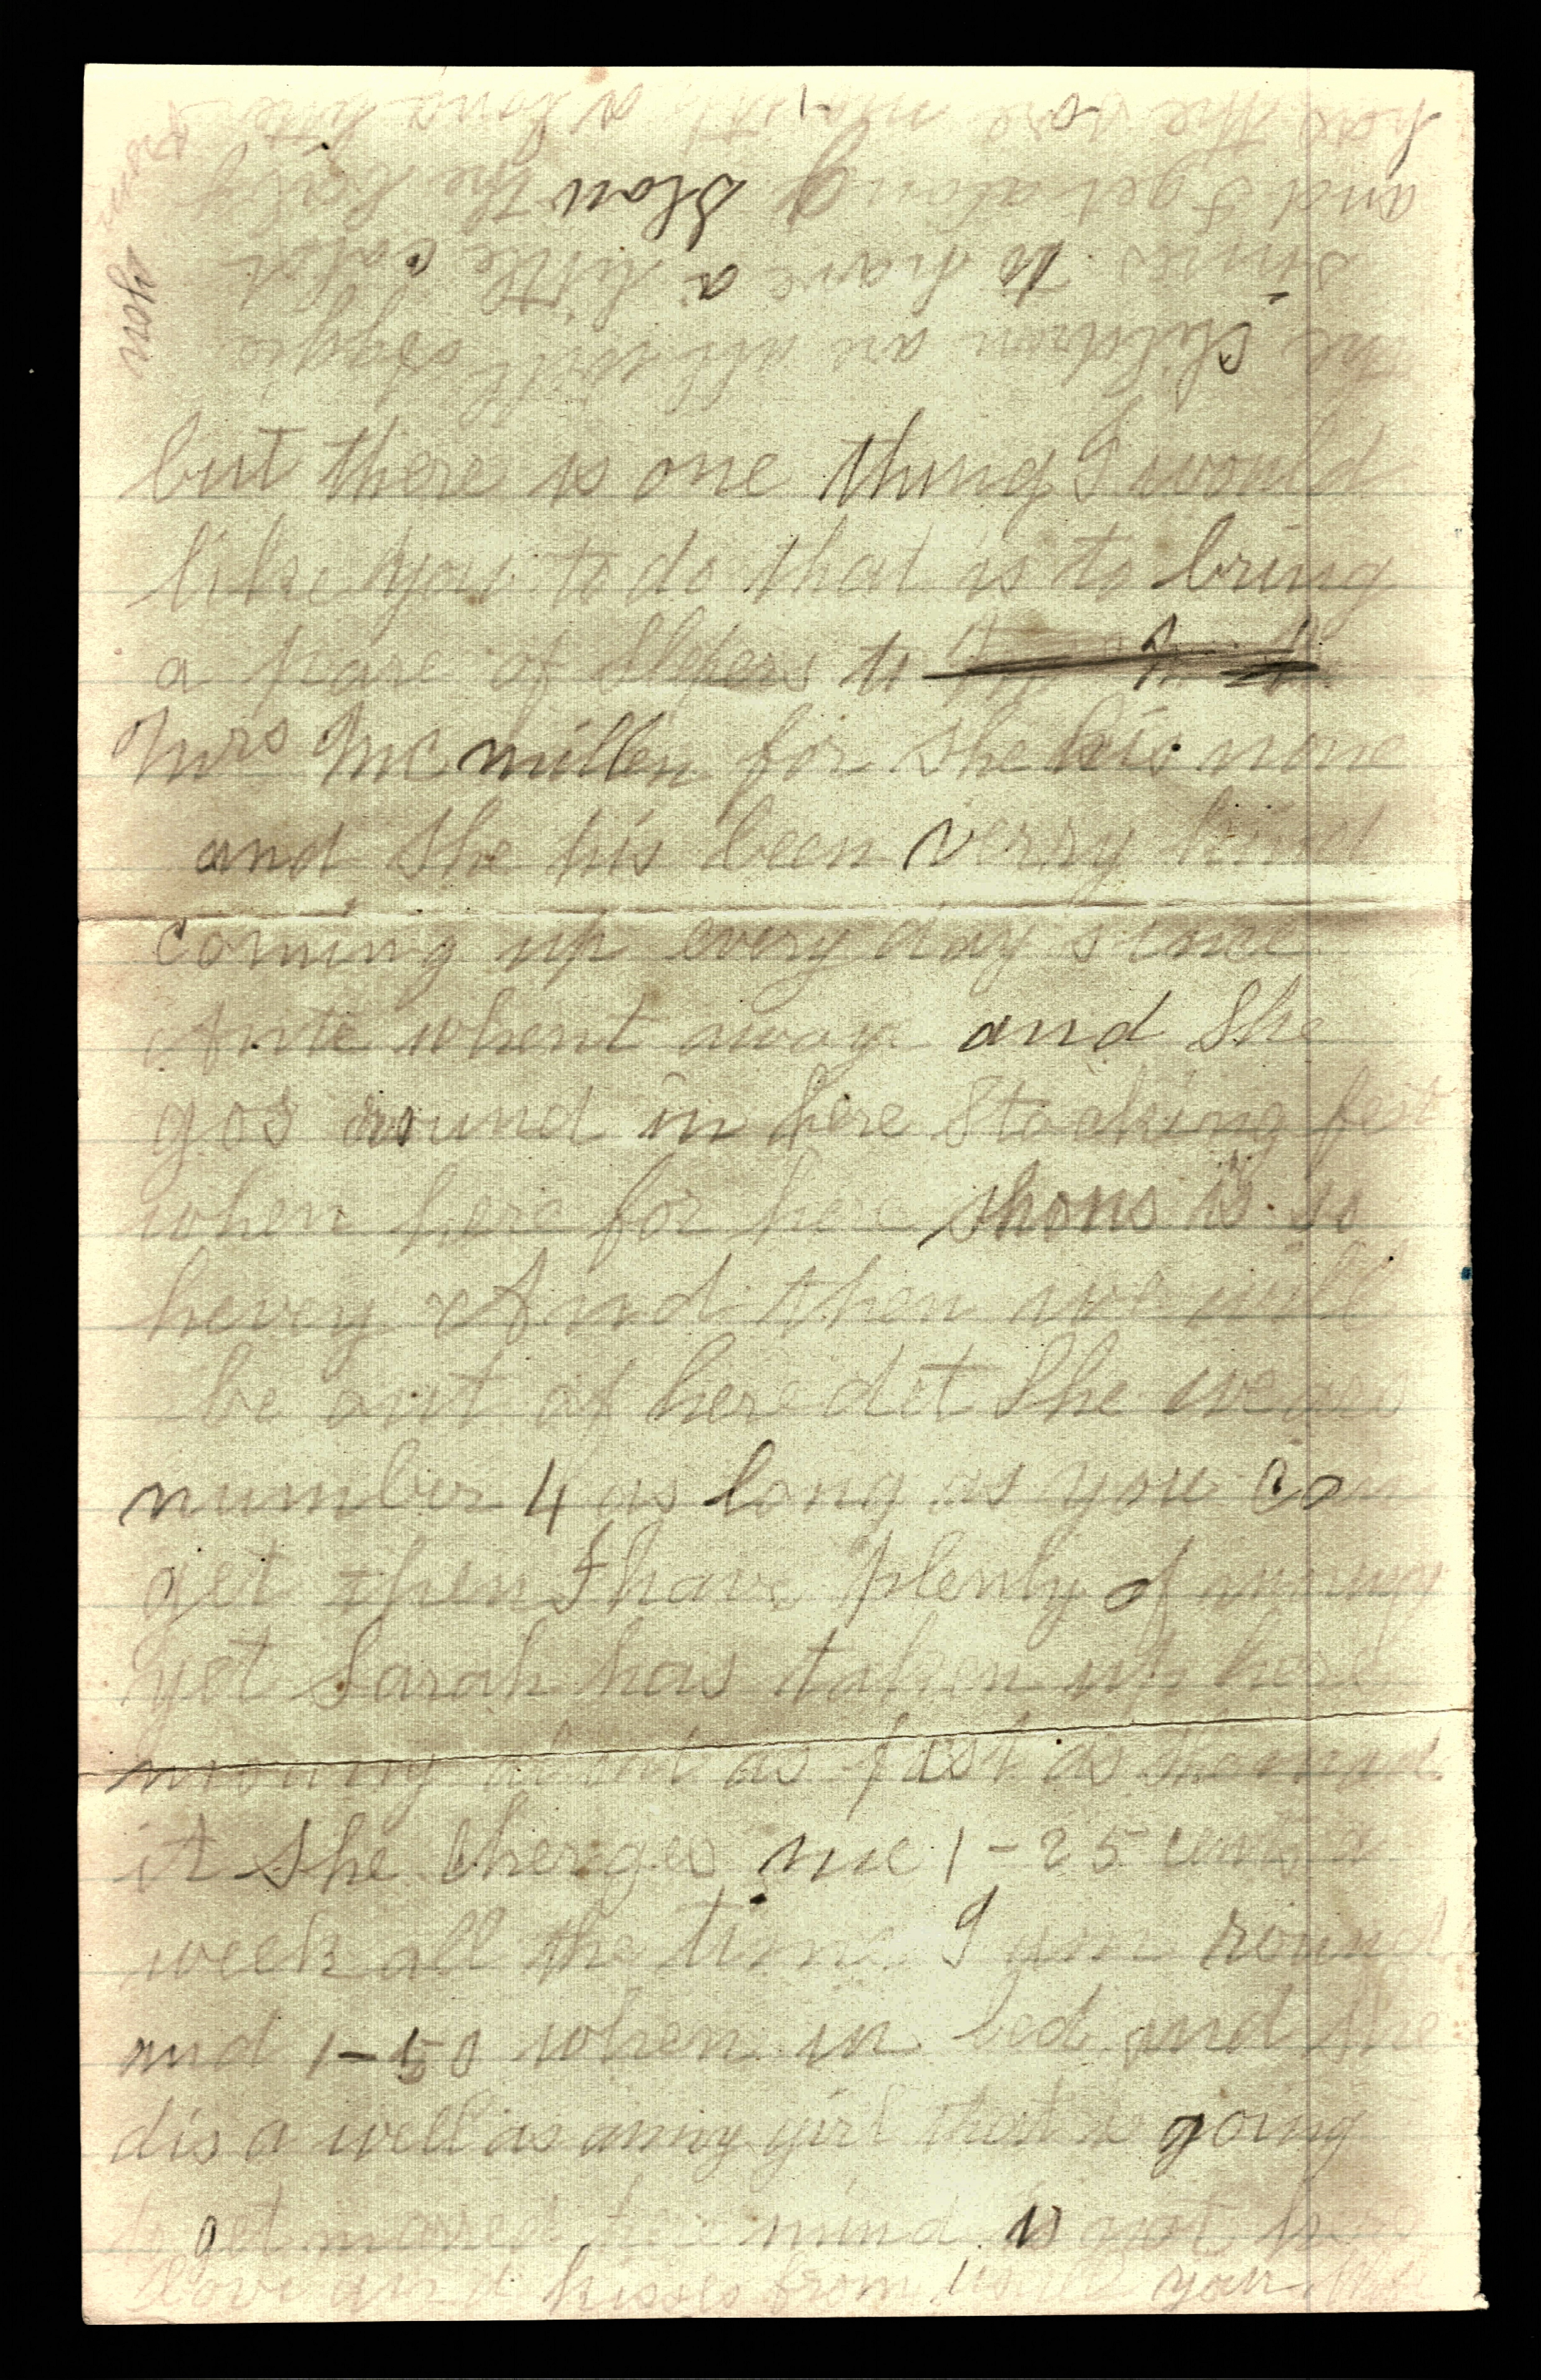 but there is one thing I would
like you to do that is to bring
a pare of Slepers to
Mrs McMillen for she his none
and She his been verry kind
coming up every day since
Ante whent away and She
gos round in here Stocking feet
when here for here shous is so
hevey And then we will
be out of here det She wears
number 4 as long as you can
get then I have plenty of munny
yet Sarah has taken up here
munny about as fast as
it She cherges me 1-25 cents a
week all the time I am round
and 1-50 when in bed and she
dis a well as anny girl that is going
to get mared here mind is not here
Love and kisses from your
the Children are all well
sines to have a little cold
and I get along Slow the baby
has the sore mouth
you